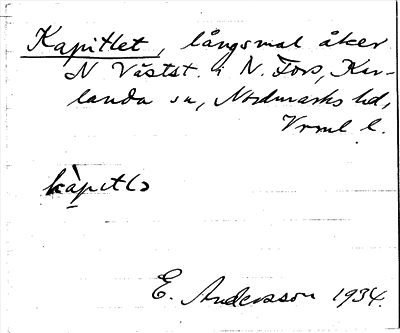 Kapitlet, långsmal åker
N Västst. i N. Fors, Kar-
landa sn, Nordmarks hd,
Vrml. l.
kàpıtlə
E. Andersson 1934.